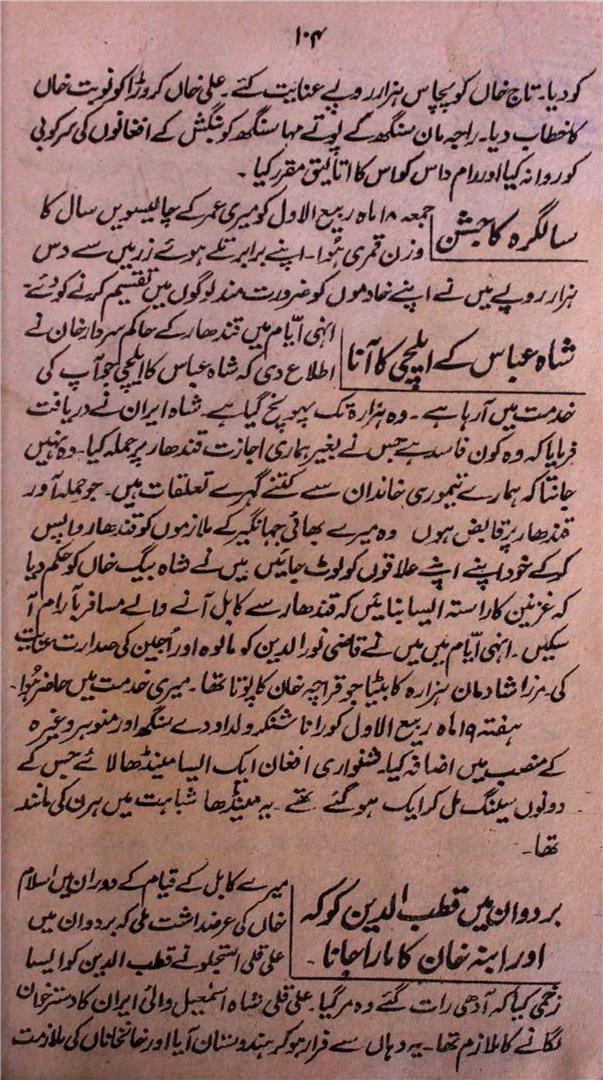 ۱۰۴
کو دیا۔ تاج خاں کو پچاس ہزار روپے عنایت کئے۔ علی خاں کروڑا کو نوبت خاں
کا خطاب دیا۔ راجہ مان سنگھ کے پوتے مہا سنگھ کو بنگش کے افغانوں کی سرکوبی
کو روانہ کیا اور رام داس کو اس کا اتالیق مقرر کیا۔
سالگرہ کا جشن
جمعہ ۱۸ ماہ ربیع الاول کو میری عمر کے چالیسویں سال کا
وزن قمری ہوا۔ اپنے برابر تلے ہوئے زر میں سے دس
ہزار روپے میں نے اپنے خادموں کو ضرورت مند لوگوں میں تقسیم کرنے کو دئے۔
شاہ عباس کے ایلچی کا آنا
انہی ایّام میں قندھار کے حاکم سردار خان نے
اطلاع دی کہ شاہ عباس کا ایلچی جو آپ کی
خدمت میں آ رہا ہے۔ وہ ہزارہ تک پہونچ گیا ہے۔ شاہ ایران نے دریافت
فرمایا کہ وہ کون فاسد ہے جس نے بغیر ہماری اجازت قندھار پر حملہ کیا۔ وہ نہیں
جانتا کہ ہمارے تیموری خاندان سے کتنے گہرے تعلقات ہیں۔ جو حملہ آور
قندھار پر قابض ہوں وہ میرے بھائی جہانگیر کے ملازموں کو قندھار واپس
کر کے خود اپنے اپنے علاقوں کو لوٹ جائیں میں نے شاہ بیگ خاں کو حکم دیا
کہ غزنین کا راستہ ایسا بنائیں کہ قندھار سے کابل آنے والے مسافر بآرام آ
سکیں۔ انہی ایّام میں میں نے قاضی نور الدین کو مالوہ اور اُجین کی صدارت عنایت
کی مرزا شادمان ہزارہ کا بیٹا جو قراچہ خان کا پوتا تھا۔ میری خدمت میں حاضر ہُوا۔
ہفتہ ۱۹ ماہ ربیع الاول کو رانا شنکر ولد اودے سنگھ اور منوہر وغیرہ
کے منصب میں اضافہ کیا۔ شنواری افغان ایک ایسا مینڈھا لائے جس کے
دونوں سینگ مل کر ایک ہو گئے تھے یہ مینڈھا شباہت میں ہرن کی مانند
تھا۔
بردوان میں قطب الدین کوکہ
اور ابنہ خان کا مارا جانا۔
میرے کابل کے قیام کے دوران میں اسلام
خاں کی عرضداشت ملی کہ بردوان میں
علی قلی استجلو نے قطب الدین کو ایسا
زخمی کیا کہ آدھی رات گئے وہ مر گیا۔ علی قلی شاہ اسمٰعیل والئی ایران کا دسترخان
لگانے کا ملازم تھا۔ یہ وہاں سے فرار ہو کر ہندوستان آیا اور خانخاناں کی ملازمت